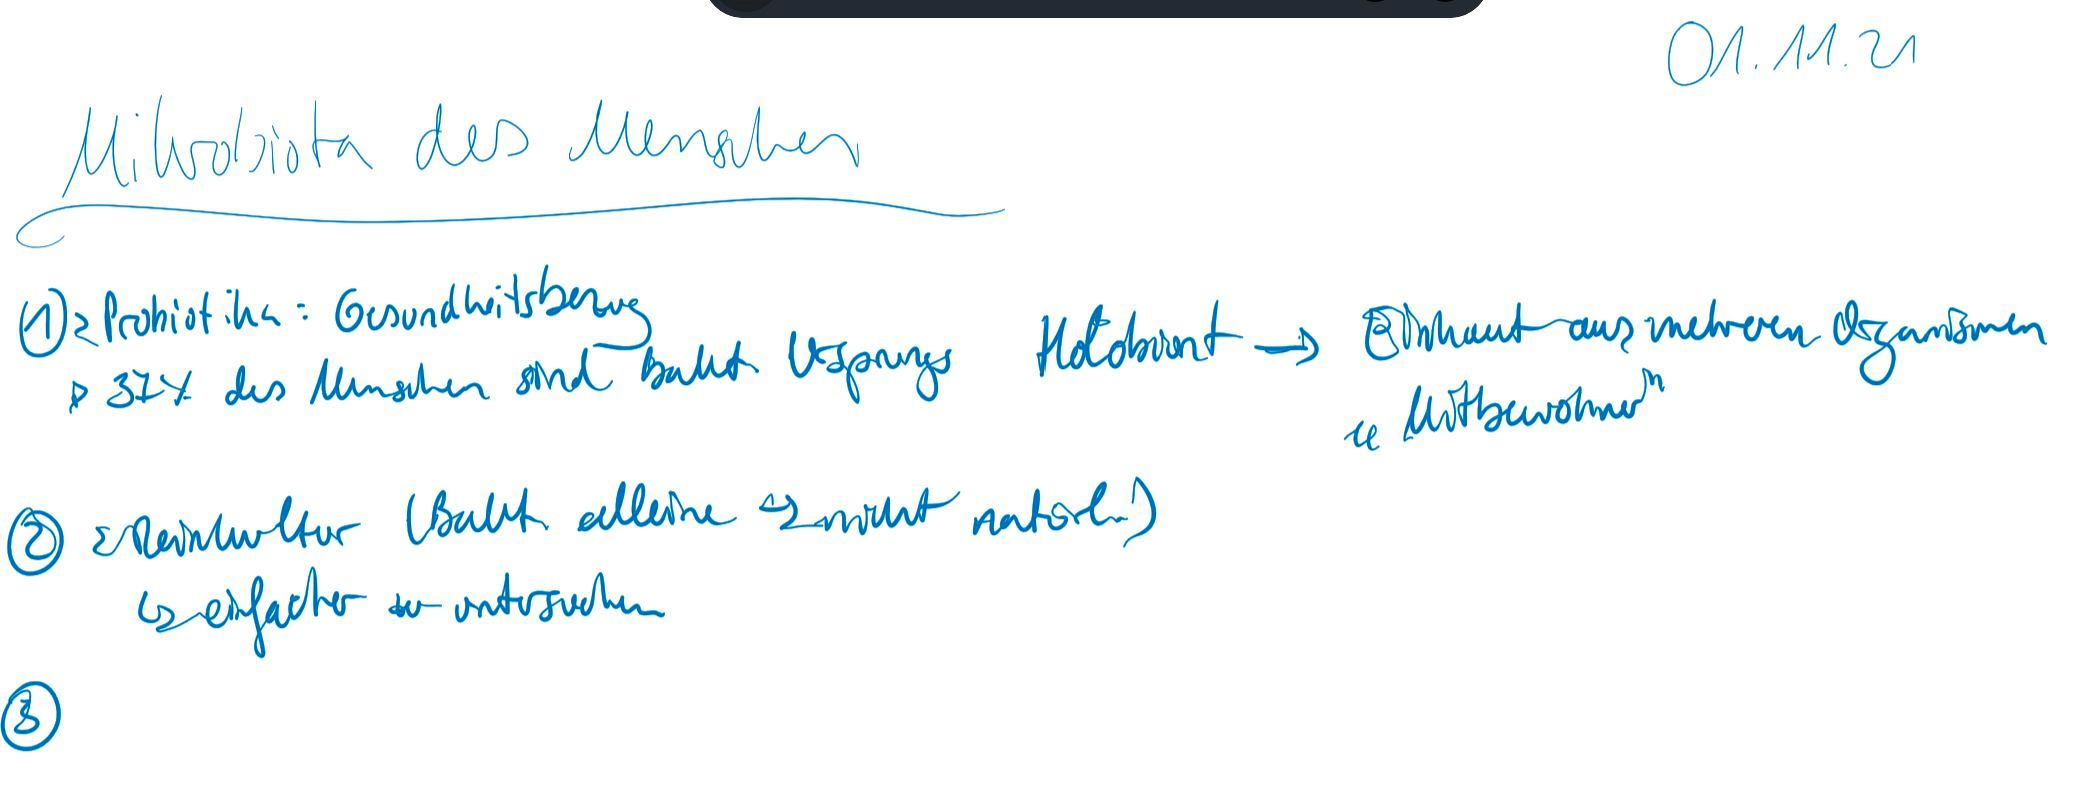 01.11.21
Mikrobiota des Menschen
① Probiotika: Gesundheitsbezug
▷ 37% des Menschen sind Bakt. Ursprungs
Holobiont → Einheit aus mehreren Organismen
"Mitbewohner"
② Reinkultur (Bakt. alleine ↳ nicht natürl.)
↳ einfacher zu untersuchen
③